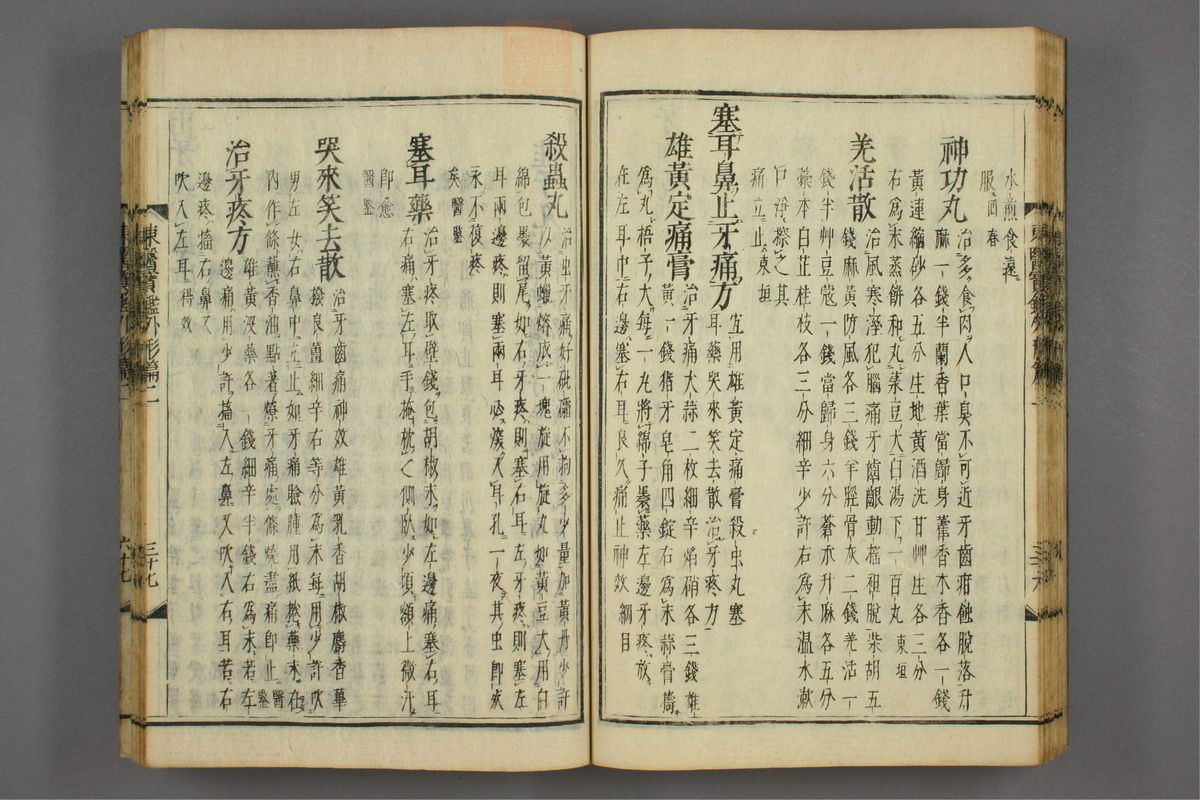 水煎食遠
服回春
神功丸治多食肉人口臭不可近牙齒疳蝕脫落升
麻一錢半蘭香葉當歸身藿香木香各一錢
黃連縮砂各五分生地黃酒洗甘艸生各三分
右爲末蒸餅和丸菉豆大白湯下一百丸東垣
羌活散治風寒溼犯腦痛牙齒齦動搖袒脫柴胡五
錢麻黃防風各三錢羊脛骨灰二錢羌活一
錢半艸豆蔲一錢當歸身六分蒼朮升麻各五分
藁本白芷桂枝各三分細辛少許右爲末温水漱
口淨擦之其
痛立止東垣
塞耳鼻止牙痛方宜用雄黃定痛膏殺虫丸塞
耳藥哭來笑去散治牙疼方
雄黃定痛膏治牙痛大蒜二枚細辛焰硝各三錢雄
黃一錢猪牙皂角四錠右爲末蒜膏擣
爲丸梧子大每一丸將綿子褁藥左邊牙疼放
在左耳中右邊塞右耳良久痛止神效綱目
殺蟲丸治虫牙痛好砒礵不拘多少量加黃丹少許
以黃蠟熔成一塊旋用旋丸如黃豆大用白
綿包褁留尾如右牙疼則塞右耳左牙疼則塞左
耳兩邊疼則塞兩耳必深入耳孔一夜其虫卽死
永不復疼
矣醫鑒
塞耳藥治牙疼取壁錢包胡椒末如左邊痛塞右耳
右痛塞左耳手掩枕之仰臥少頃額上微汗
卽愈
醫鑒
哭來笑去散治牙齒痛神效雄黃乳香胡椒麝香蓽
撥良薑細辛右等分爲末每用少許吹
男左女右鼻中立止如牙痛臉腫用紙撚藥末在
內作條蘸香油點著燎牙痛處條燒盡痛卽止醫鑒
治牙疼方雄黃沒藥各一錢細辛半錢右爲末若左
邊痛用少許搐入左鼻又吹入右耳若右
邊疼搐右鼻又
吹入左耳得效
東醫寶鑑外形篇二
三十七